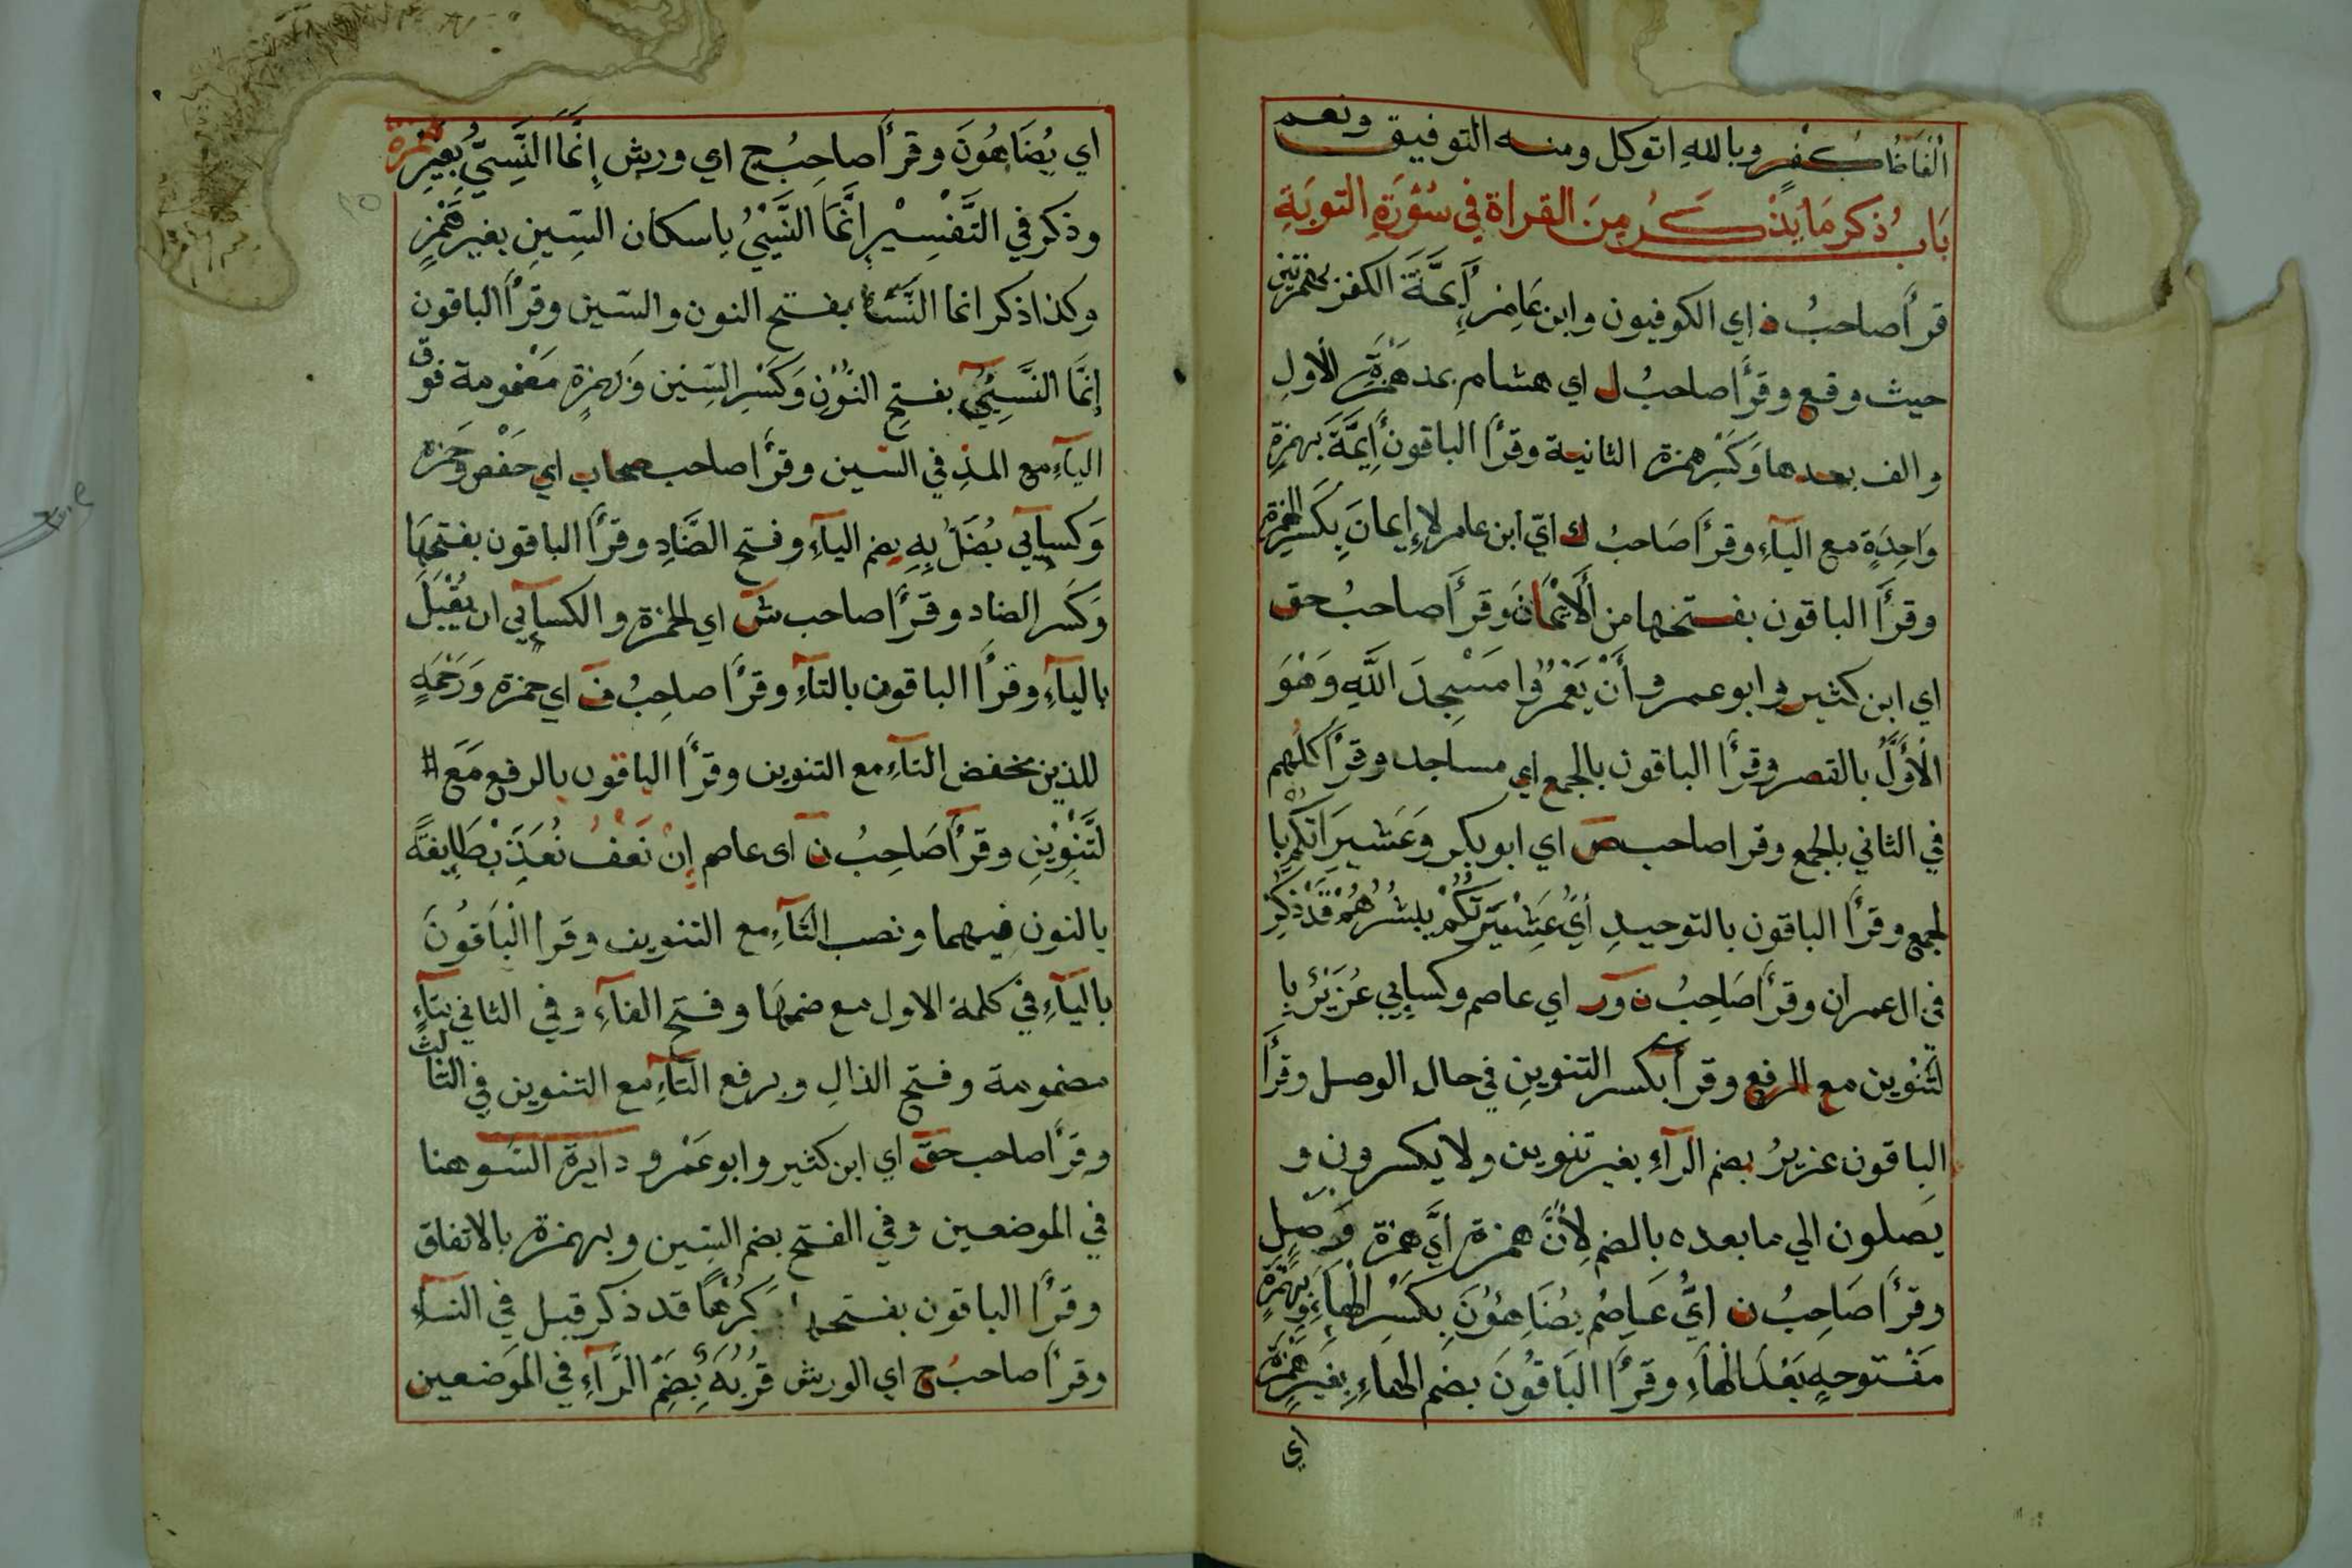 الفاظا كفر وبالله اتوكل ومنه التوفيق ونعم
بَابُ ذكر مَا يذْكَرُ مِنَ القراة في سُوْرَةِ التوبَةِ
قرأ صاحبُ ذ اي الكوفيون وابن عَامِر أَئِمَّةَ الكفر بهمزتين
حيث وقع وقرأ صاحبُ ل اي هشام بمد هَمْزَةِ الاولِ
والف بعدها وَكَسْرِ همزة الثانية وقرأ الباقون أَيِمَّةَ بهمزةِ
وَاحِدَةٍ مع اليآءِ وقرأ صَاحبُ ك ايّ ابن عامر لا إِيمانَ بِكَسْرِ الهمزة
وقرأ الباقون بفتحها من ألْاَيْمَانَ وقرأ صاحبُ حق
اي ابن كثير وابو عمرو أَنْ يَعْمُرُوا مَسْجِدَ اللَّهِ وَهُوَ
الْاَوَّلُ بالقصر وقرأ الباقون بالجمع اي مساجد وقرأ كلهم
في الثاني بالجمع وقرا صاحب ص اي ابو بكر وَعَشيرَاتكم با
لجمع وقرأ الباقون بالتوحيدِ أيْ عَشِيْرَتكُمْ يبشرُهُمْ قَدْ ذكر
في ال عمران وقرأ صَاحِبُ ن ور اي عاصم وكسايي عُزَيْرٌ با
لتَّنْوين مع الرفع وقرأ بكسر التنوينِ في حال الوصل وقرأ
الباقون عزيرُ بضم الرآءِ بغير تنوين ولا يكسرون و
يَصلون الي ما بعده بالضم لِأَنَّ همزة أيَّ همزة وَصلِ
وقرأ صَاحِبُ ن ايُّ عَاصِم يُضَاهِئُوْنَ بِكَسْرِ الْهآءِ وبهمْزَةٍ
مَفْتوحةٍ بَعْدَ الْهآءِ وقرأ البَاقُونَ بضم الهاءِ بغير همزة
اي
اي يُضَاهُونَ وقرأ صاحِبُ ج اي ورش إِنَّمَا النَّسِيُّ بِغيرِ همزة
وذكر في التَّفْسِيْرِ إِنَّمَا النَّسْيُ بِاسكان السِّينِ بغير هَمْزٍ
وكذا ذكر انما النَّسَا بفتح النون والسّين وقرأ الباقون
إِنَّمَا النَّسِيْئُ بفتحِ النُّوْنِ وَكَسْرِ السِّين وَبهمزةٍ مَضْمومة فوق
اليآءِ مع المدِ في السّين وقرأ صاحب صحاب اي حَفْص وحَمزة
وَكسآيي يُضَلُّ بِهِ بِضم اليآءِ وفتح الضَّادِ وقرأ الباقون بفتحِهَا
وَكَسْر الضاد وقرأ صاحب ش اي الحمزة والكسآيي ان يُقْبَلَ
باليآءِ وقرأ الباقون بالتآءِ وقرأ صاحِبُ ف اي حمزة وَرَحْمَةٍ
للذين بخفض التآءِ مع التنوين وقرأ الباقون بالرفع مَعَ #
لتَّنْوِيْنِ وقرأ صَاحِبُ ن اى عاصم إِنْ نَعْفُ نُعَذِّبْ طَايِفةً
بالنون فيهما ونصب التآءِ مع التنوين وقرا الْبَاقُونَ
باليآءِ في كلمة الاول مع ضمهَا وفتح الفآءِ وفي الثاني بتآءٍ
مضمومة وفتح الذالِ وبرفع التآءِ مع التنوين في الثالث
وقرأ صاحب حق اي ابن كثير وابو عَمْرو دايرة السَّو هنا
في الموضعين وفي الفتح بضم السِّين وبهمزة بالاتفاق
وقرأ الباقون بفتحها كَرْهًا قد ذكر قبل في النسآءِ
وقرأ صاحبُ ج اي الورش قُرُبَةٌ بِضَمِّ الرَّآءِ في الموَضعين